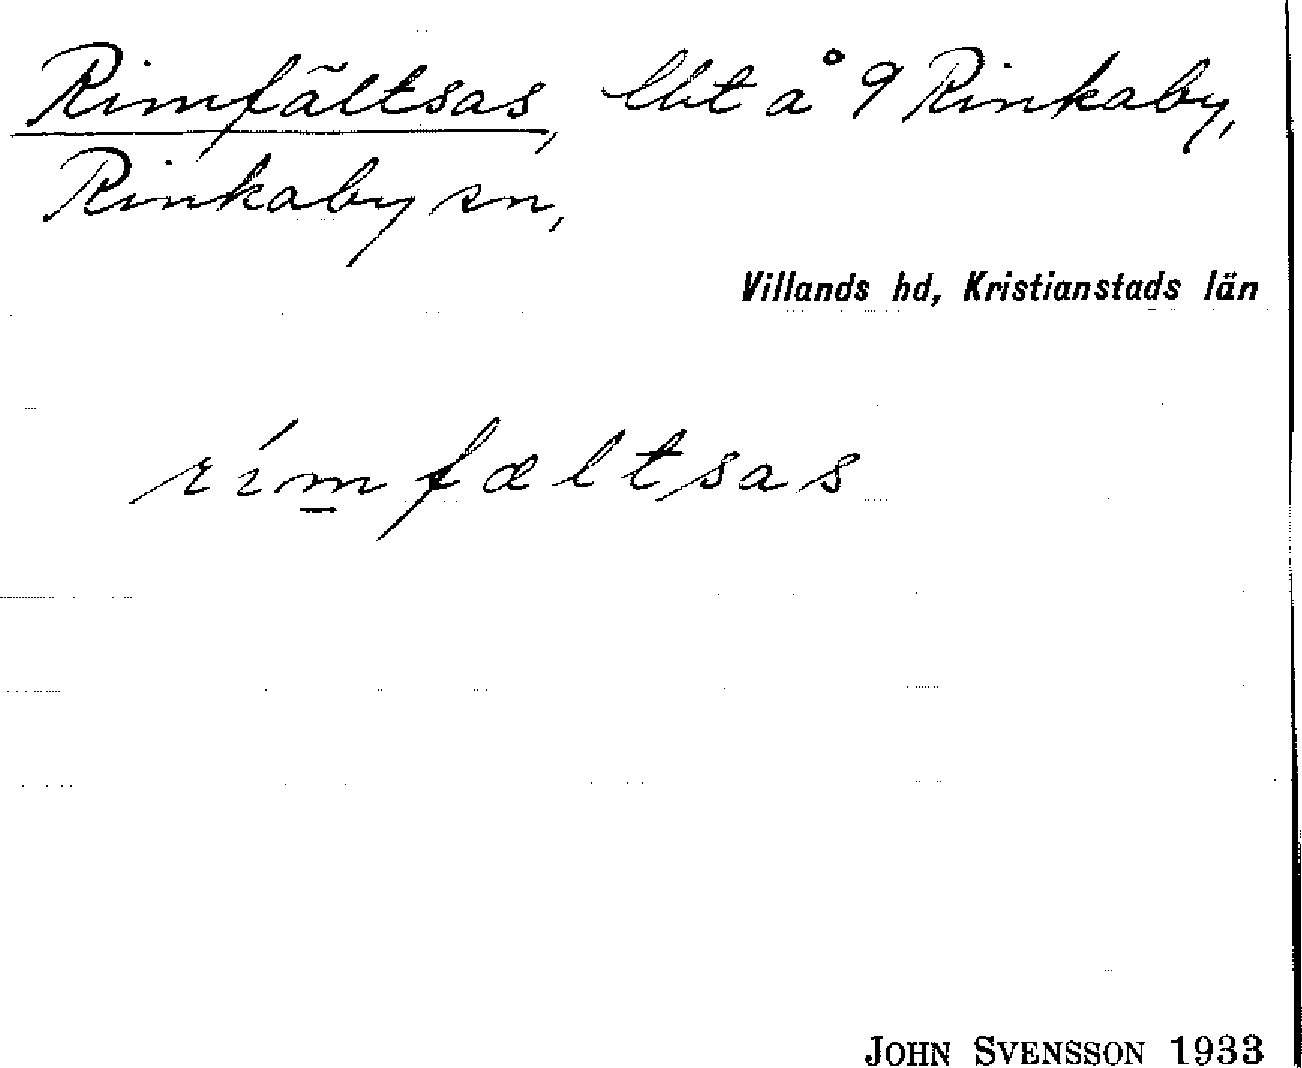 Rimfältsas, lht å 9 Rinkaby,
Rinkaby sn,
Villands hd, Kristianstads län
rímfæltsas
JOHN SVENSSON 1933